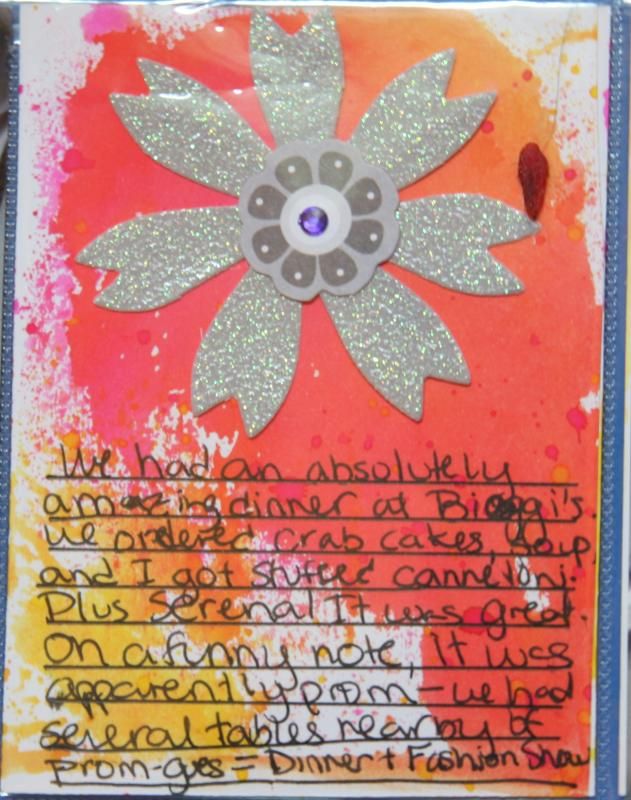 We had an absolutely
amazing dinner at Biaggi's.
We ordered crab cakes, soup,
and I got stuffed cannelloni.
Plus Serena! It was great.
On a funny note, it was
apparently prom - we had
several tables nearby of
prom-goes = Dinner + Fashion Show